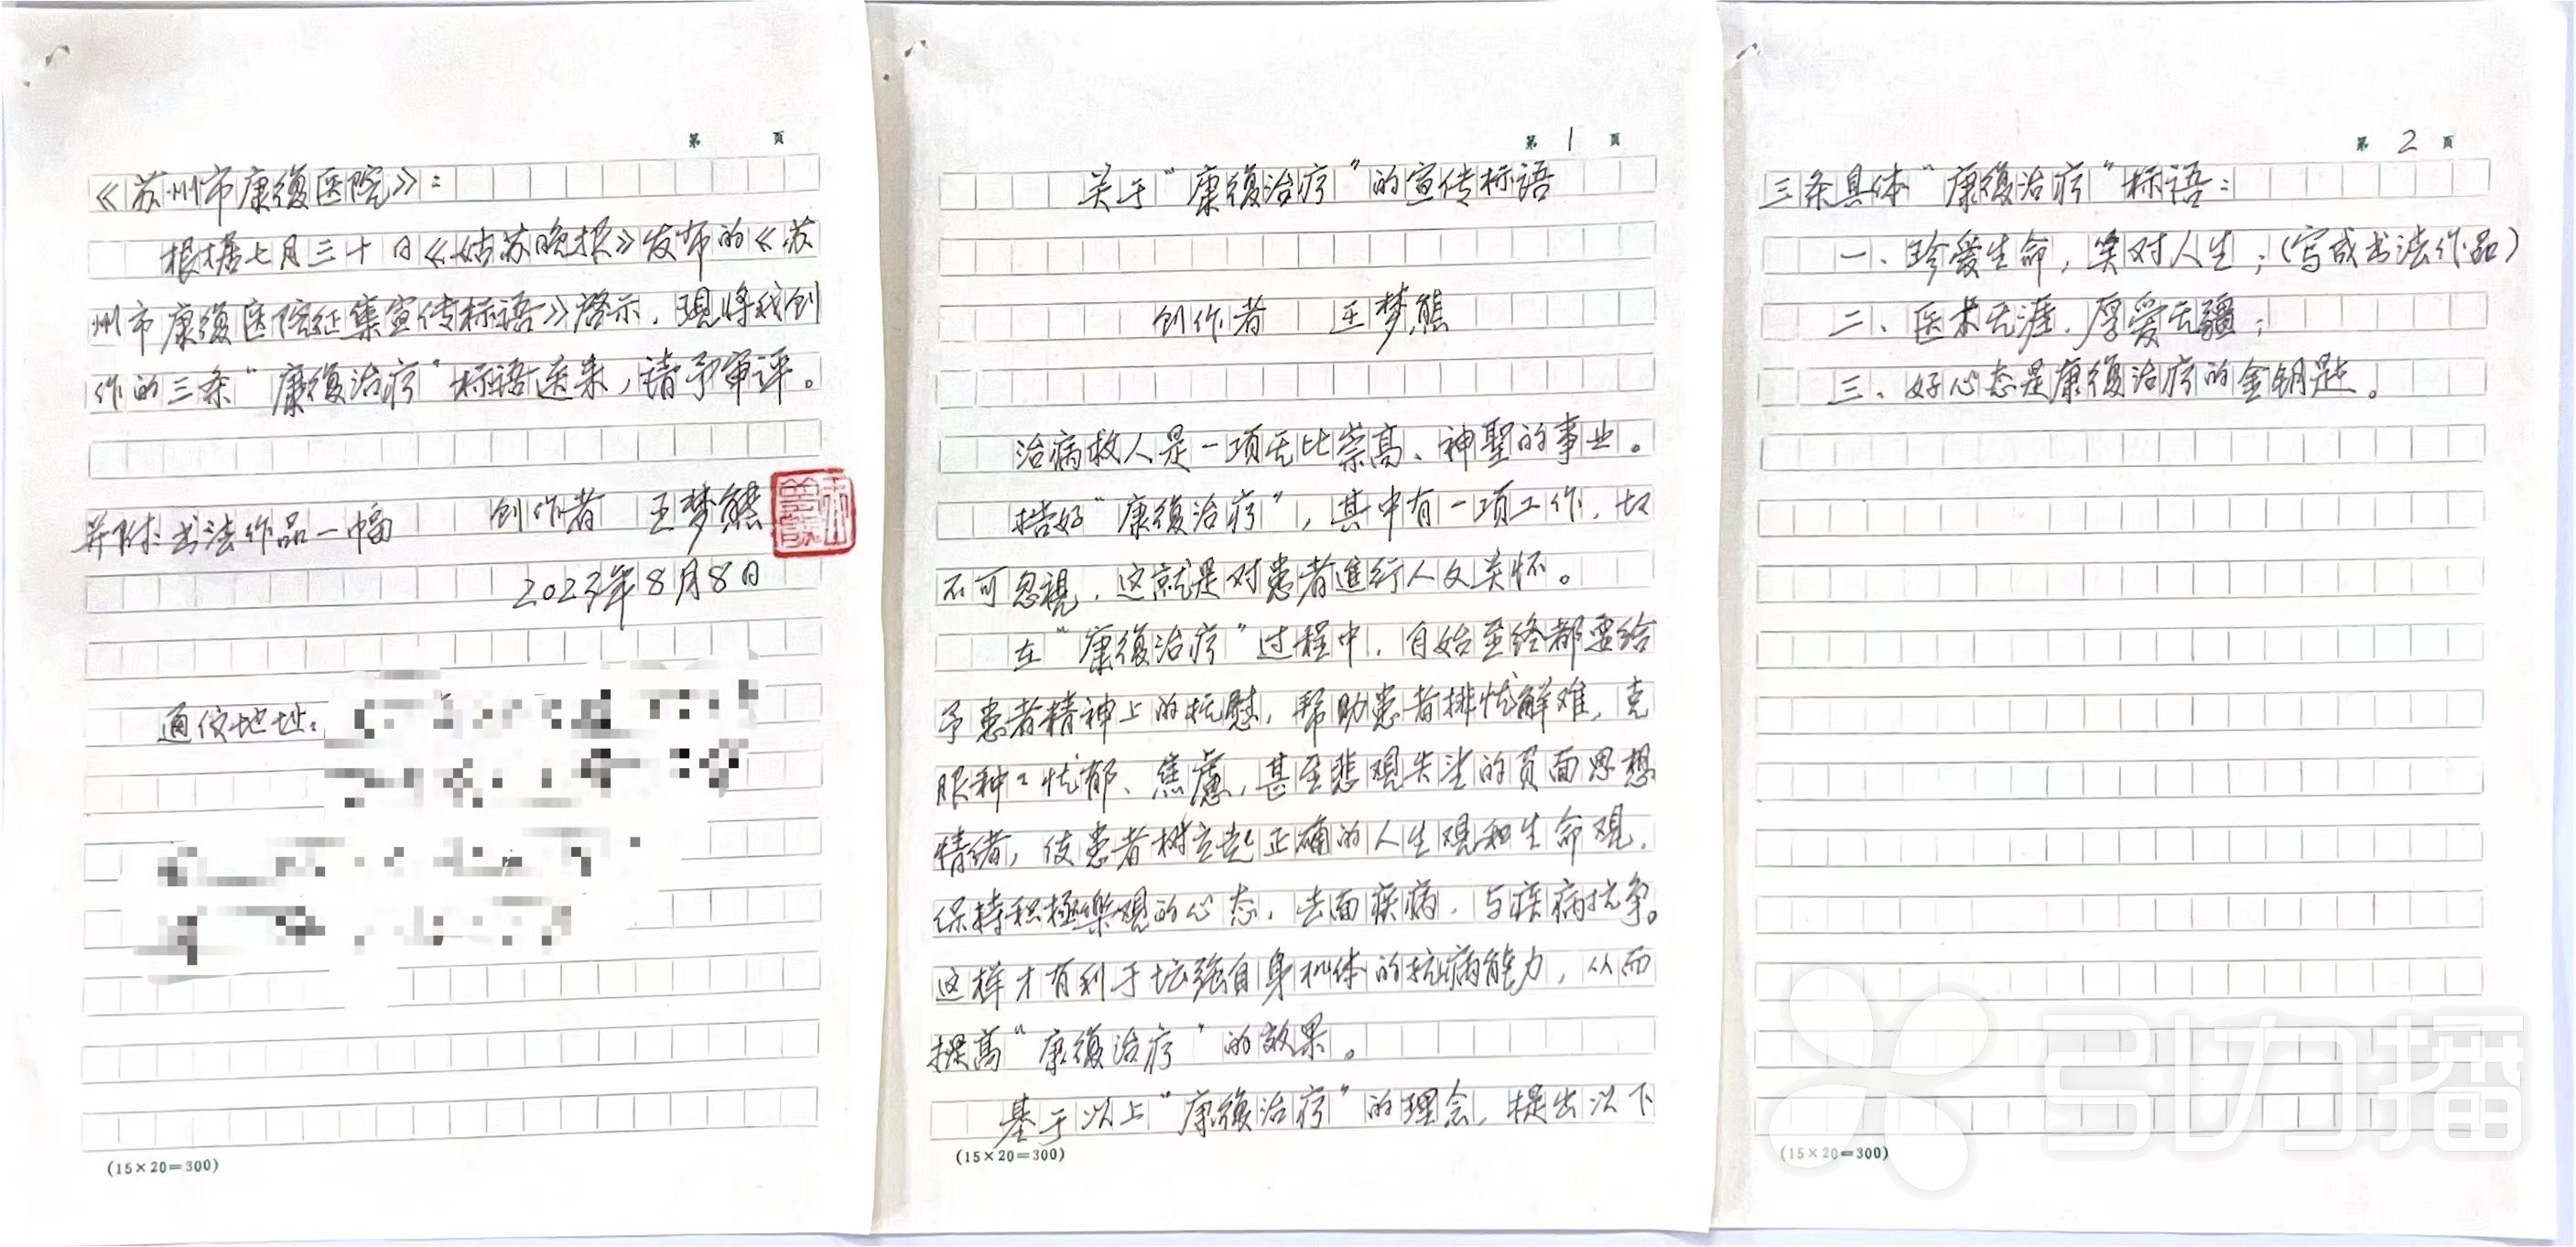 第 页
《苏州市康復医院》：
根据七月三十日《姑苏晚报》发布的《苏
州市康復医院征集宣传标语》启示，现将我创
作的三条“康復治疗”标语送来，请予审评。
创作者 王梦熊
并附：书法作品一幅
2023年8月8日
通信地址：
(15×20=300)
第 1 页
关于“康復治疗”的宣传标语
创作者 王梦熊
治病救人是一项无比崇高、神聖的事业。
搞好“康復治疗”，其中有一项工作，切
不可忽視，这就是对患者進行人文关怀。
在“康復治疗”过程中，自始至终都要给
予患者精神上的抚慰，帮助患者排忧解难，克
服种々忧郁、焦慮，甚至悲观失望的负面思想
情绪，使患者树立起正确的人生观和生命观，
保持积極樂观的心态，去面疾病，与疾病抗争。
这样才有利于增强自身机体的抗病能力，从而
提高“康復治疗”的效果。
基于以上“康復治疗”的理念，提出以下
(15×20=300)
第 2 页
三条具体“康復治疗”标语：
一、珍爱生命，笑对人生；（写成书法作品）
二、医术无涯，厚爱无疆；
三、好心态是康復治疗的金钥匙。
(15×20=300)
引力播